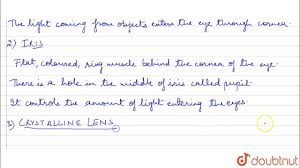 The light coming from objects enters the eye through cornea.
2) IRIS
Flat, coloured, ring muscle behind the cornea of the eye.
There is a hole in the middle of iris called pupil.
It controls the amount of light entering the eyes.
3) CRYSTALLINE LENS
doubtnut